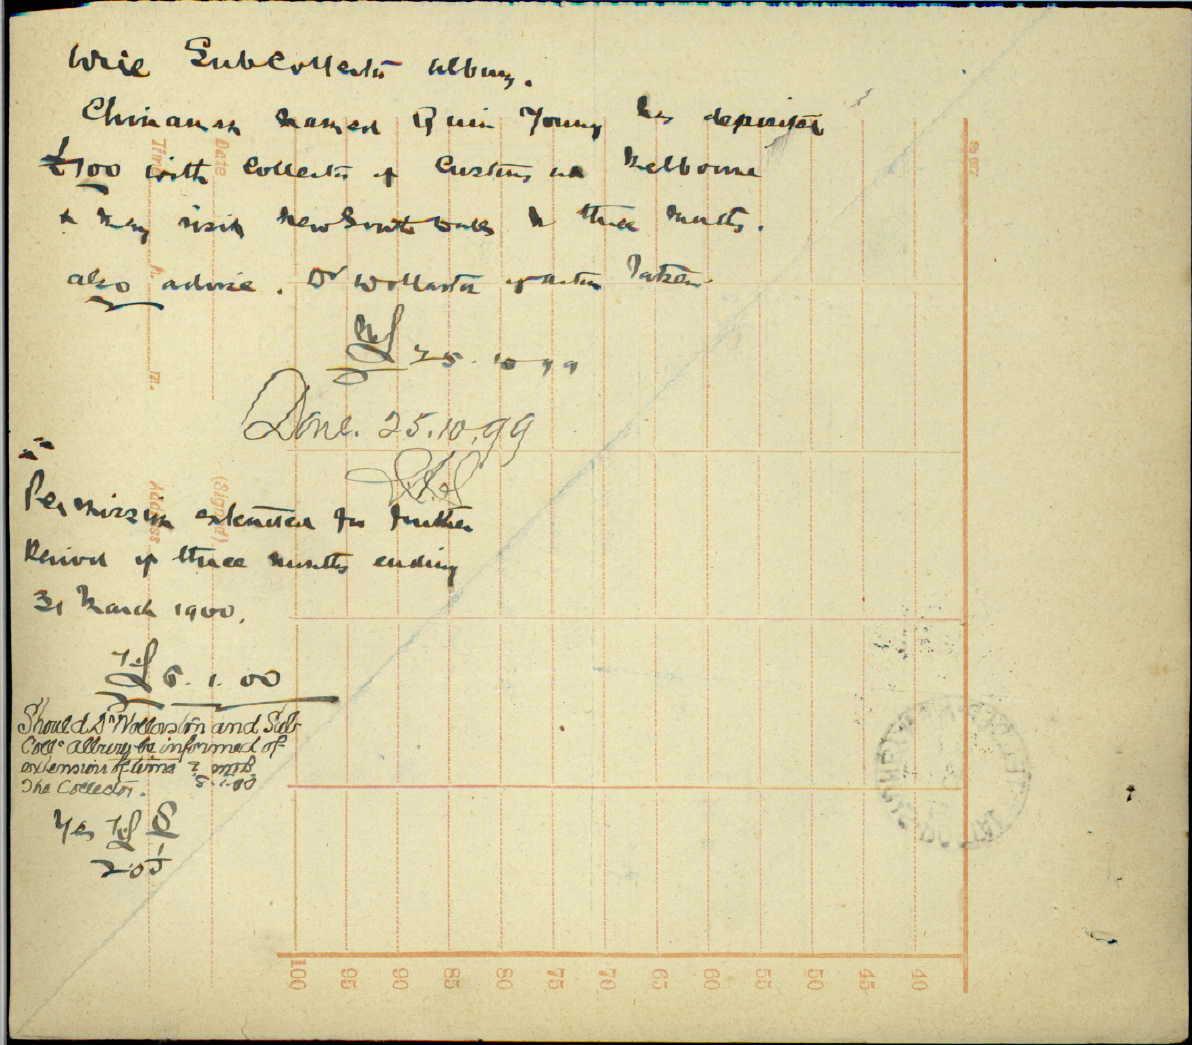 Wire SubCollector Albury.
Chinaman named Quin Young has deposited
£100 with Collector of Customs at Melbourne
& may visit New South Wales for three months.
also advise. Dr Wollaston of action taken
25.10.99
Done. 25.10.99
Permission extended for further
Period of three months ending
31 March 1900.
6.1.00
Should Dr Wollaston and Sub
Collr Albury be informed of
extension of time?
The Collector. 8.1.00
Yes
Date
Time
m.
(Signed)
Address
100 95 90 85 80 75 70 65 60 55 50 45 40